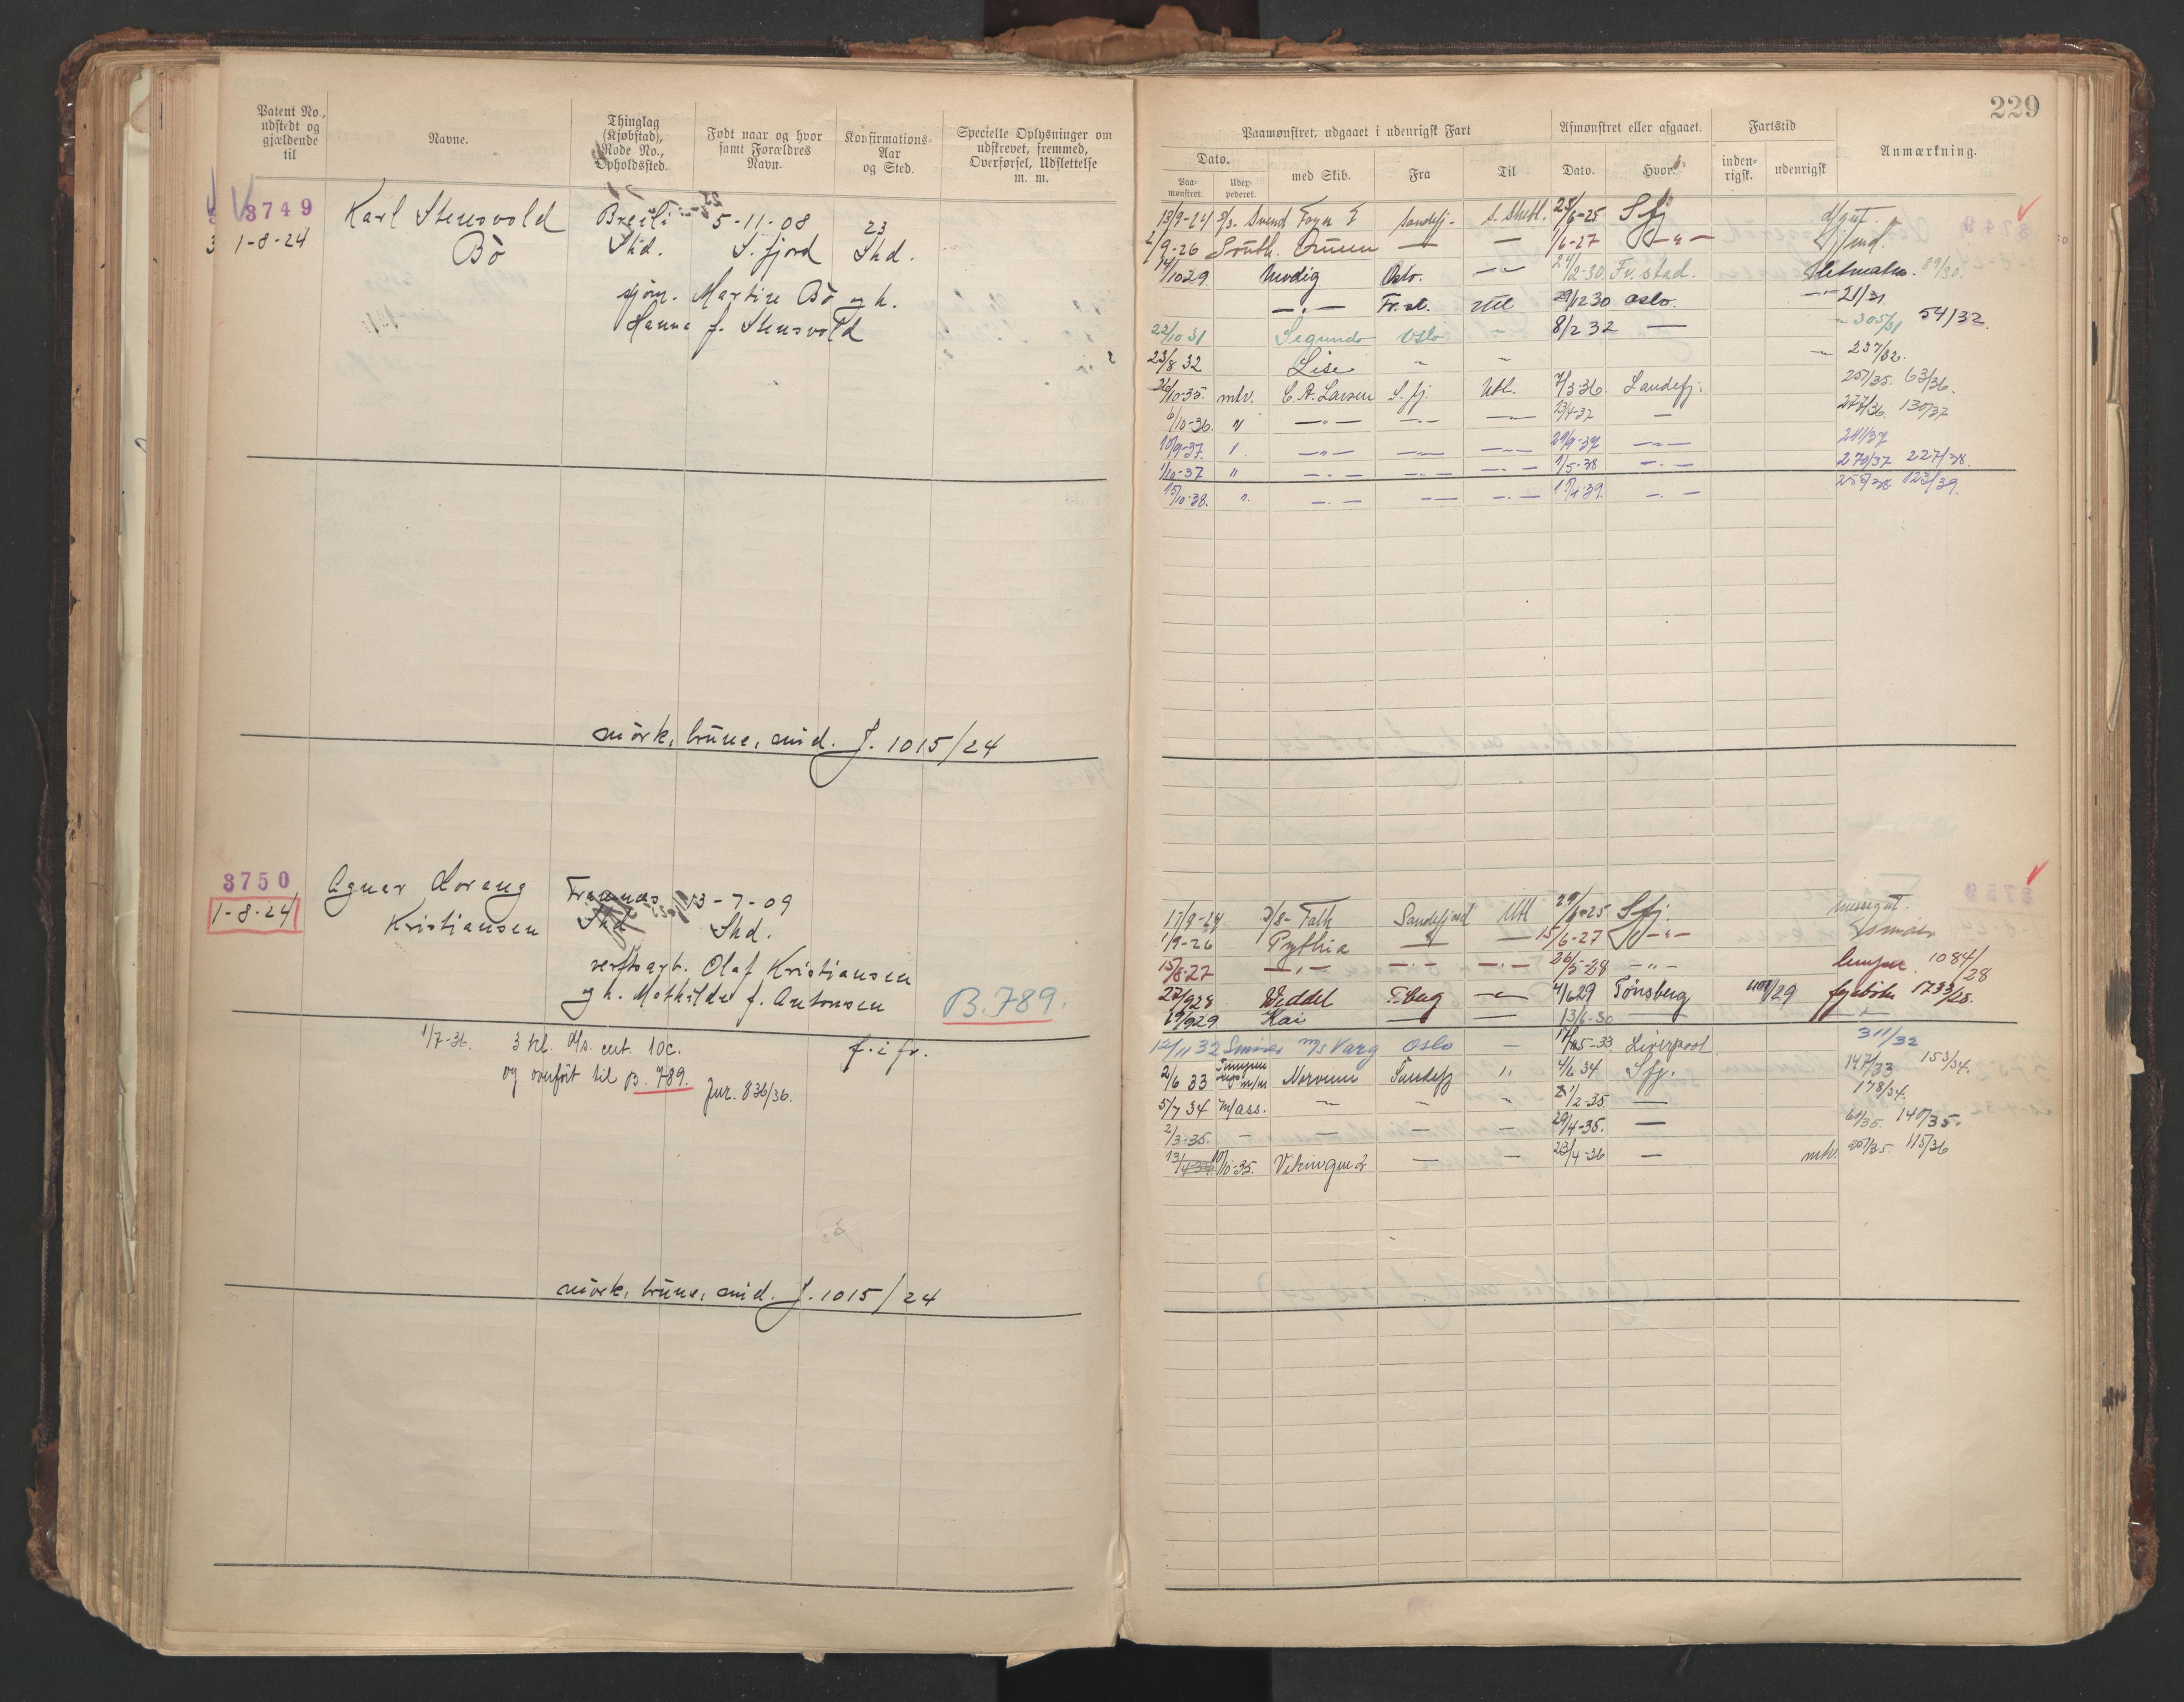 229
Patent No., udstedt og gjældende til
Navne.
Thinglag (Kjøbstad), Rode No., Opholdssted.
Født naar og hvor samt Forældres Navn.
Konfirmations-Aar og Sted.
Specielle Oplysninger om udskrevet, fremmed, Overførsel, Udslettelse m. m.
Paamønstret, udgaaet i udenrigsk Fart
Afmønstret eller afgaaet.
Fartstid
Anmærkning.
Dato.
Paa-mønstret.
med Skib.
Fra
Til
Dato.
Hvor
inden-rigsk.
udenrigsk
3749
1-8-24
Karl Stensvold
Bø
Breili
Shd.
5-11-08
S. fjord
23
Shd.
sjøm. Martin Bø og h.
Hanna f. Stensvold
mørk, brune, mid. J. 1015/24
13/9-24 Svend Foyn I Sandefj. S. Shetl. 25/6-25 Sfj
2/9-26 South. 1/6-27 -"-
14/10 29 Modig Oslo. 24/2-30 Fr.stad. 89/30.
-"- Fr.st. Utl 29/12 30 Oslo. 21/31
22/10 31 Segundo Oslo 8/2 32 305/31 54/32.
23/8 32 Lise 237/32.
26/10-35. C. A. Larsen S. fj. Utl. 7/3 36. Sandefj. 257/35. 63/36.
6/10-36. " -"- 23/4-37 277/36. 130/37
10/9-37. -"- 29/9-37 -"- 241/37
1/10-37 " -"- 1/5-38 -"- 270/37 227/38.
15/10-38. -"- -"- 123/39.
3750
1-8-24
Agnar Lorang
Kristiansen
Framnæs
Shd
13-7-09
Shd.
verftsarb. Olaf Kristiansen
og h. Mathilde f. Antonsen
B. 789.
1/7-36. 3 kl. 10c.
og overført til B. 789.
Jnr. 836/36.
f. i fr.
mørk, brune, mid. J. 1015/24
17/9-24 Falk Sandefjord Utl 29/6-25 Sfj.
1/9-26 Pythia 15/6-27 -"-
15/8-27 -"- 26/5-28 -"- 1084/28
27/9 28 Weddel Tbug 4/6 29 Tønsberg 1733/28.
19/9 29 Kai 13/6-30
12/11 32 Smører m/s Varg Oslo 17/5-33 Liverpool 311/32
2/6 33 Norvinn Sandefj " 4/6 34 Sfj. 147/33 153/34.
5/7 34 M/ass. 21/2-35 178/34.
2/3-35. 29/4-35. 61/35. 140/35.
10/10-35. Vikingen 2 23/4-36 115/36